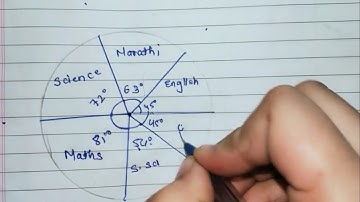 Marathi
Science
English
63°
72°
45°
45°
81°
54°
Maths
S.sci